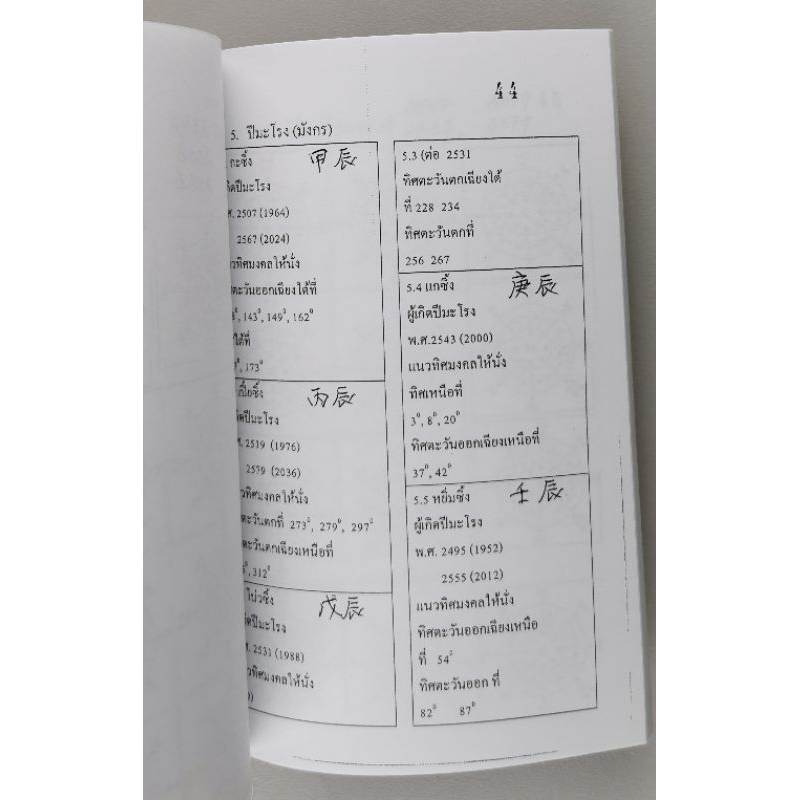 44
5. ปีมะโรง (มังกร)
กะซิ้ง 甲辰
กิดปีมะโรง
ศ. 2507 (1964)
2567 (2024)
วทิศมงคลให้นั่ง
ตะวันออกเฉียงใต้ที่
143⁰, 149⁰, 162⁰
ใต้ที่
173⁰
เปี้ยซิ้ง 丙辰
กิดปีมะโรง
ศ. 2519 (1976)
2579 (2036)
วทิศมงคลให้นั่ง
ตะวันตกที่ 273⁰, 279⁰, 297⁰
ตะวันตกเฉียงเหนือที่
312⁰
โบ่วซิ้ง 戊辰
กิดปีมะโรง
ศ. 2531 (1988)
วทิศมงคลให้นั่ง
5.3 (ต่อ 2531
ทิศตะวันตกเฉียงใต้
ที่ 228 234
ทิศตะวันตกที่
256 267
5.4 แกซิ้ง 庚辰
ผู้เกิดปีมะโรง
พ.ศ.2543 (2000)
แนวทิศมงคลให้นั่ง
ทิศเหนือที่
3⁰, 8⁰, 20⁰
ทิศตะวันออกเฉียงเหนือที่
37⁰, 42⁰
5.5 หยิ่มซิ้ง 壬辰
ผู้เกิดปีมะโรง
พ.ศ. 2495 (1952)
2555 (2012)
แนวทิศมงคลให้นั่ง
ทิศตะวันออกเฉียงเหนือ
ที่ 54⁰
ทิศตะวันออก ที่
82⁰ 87⁰